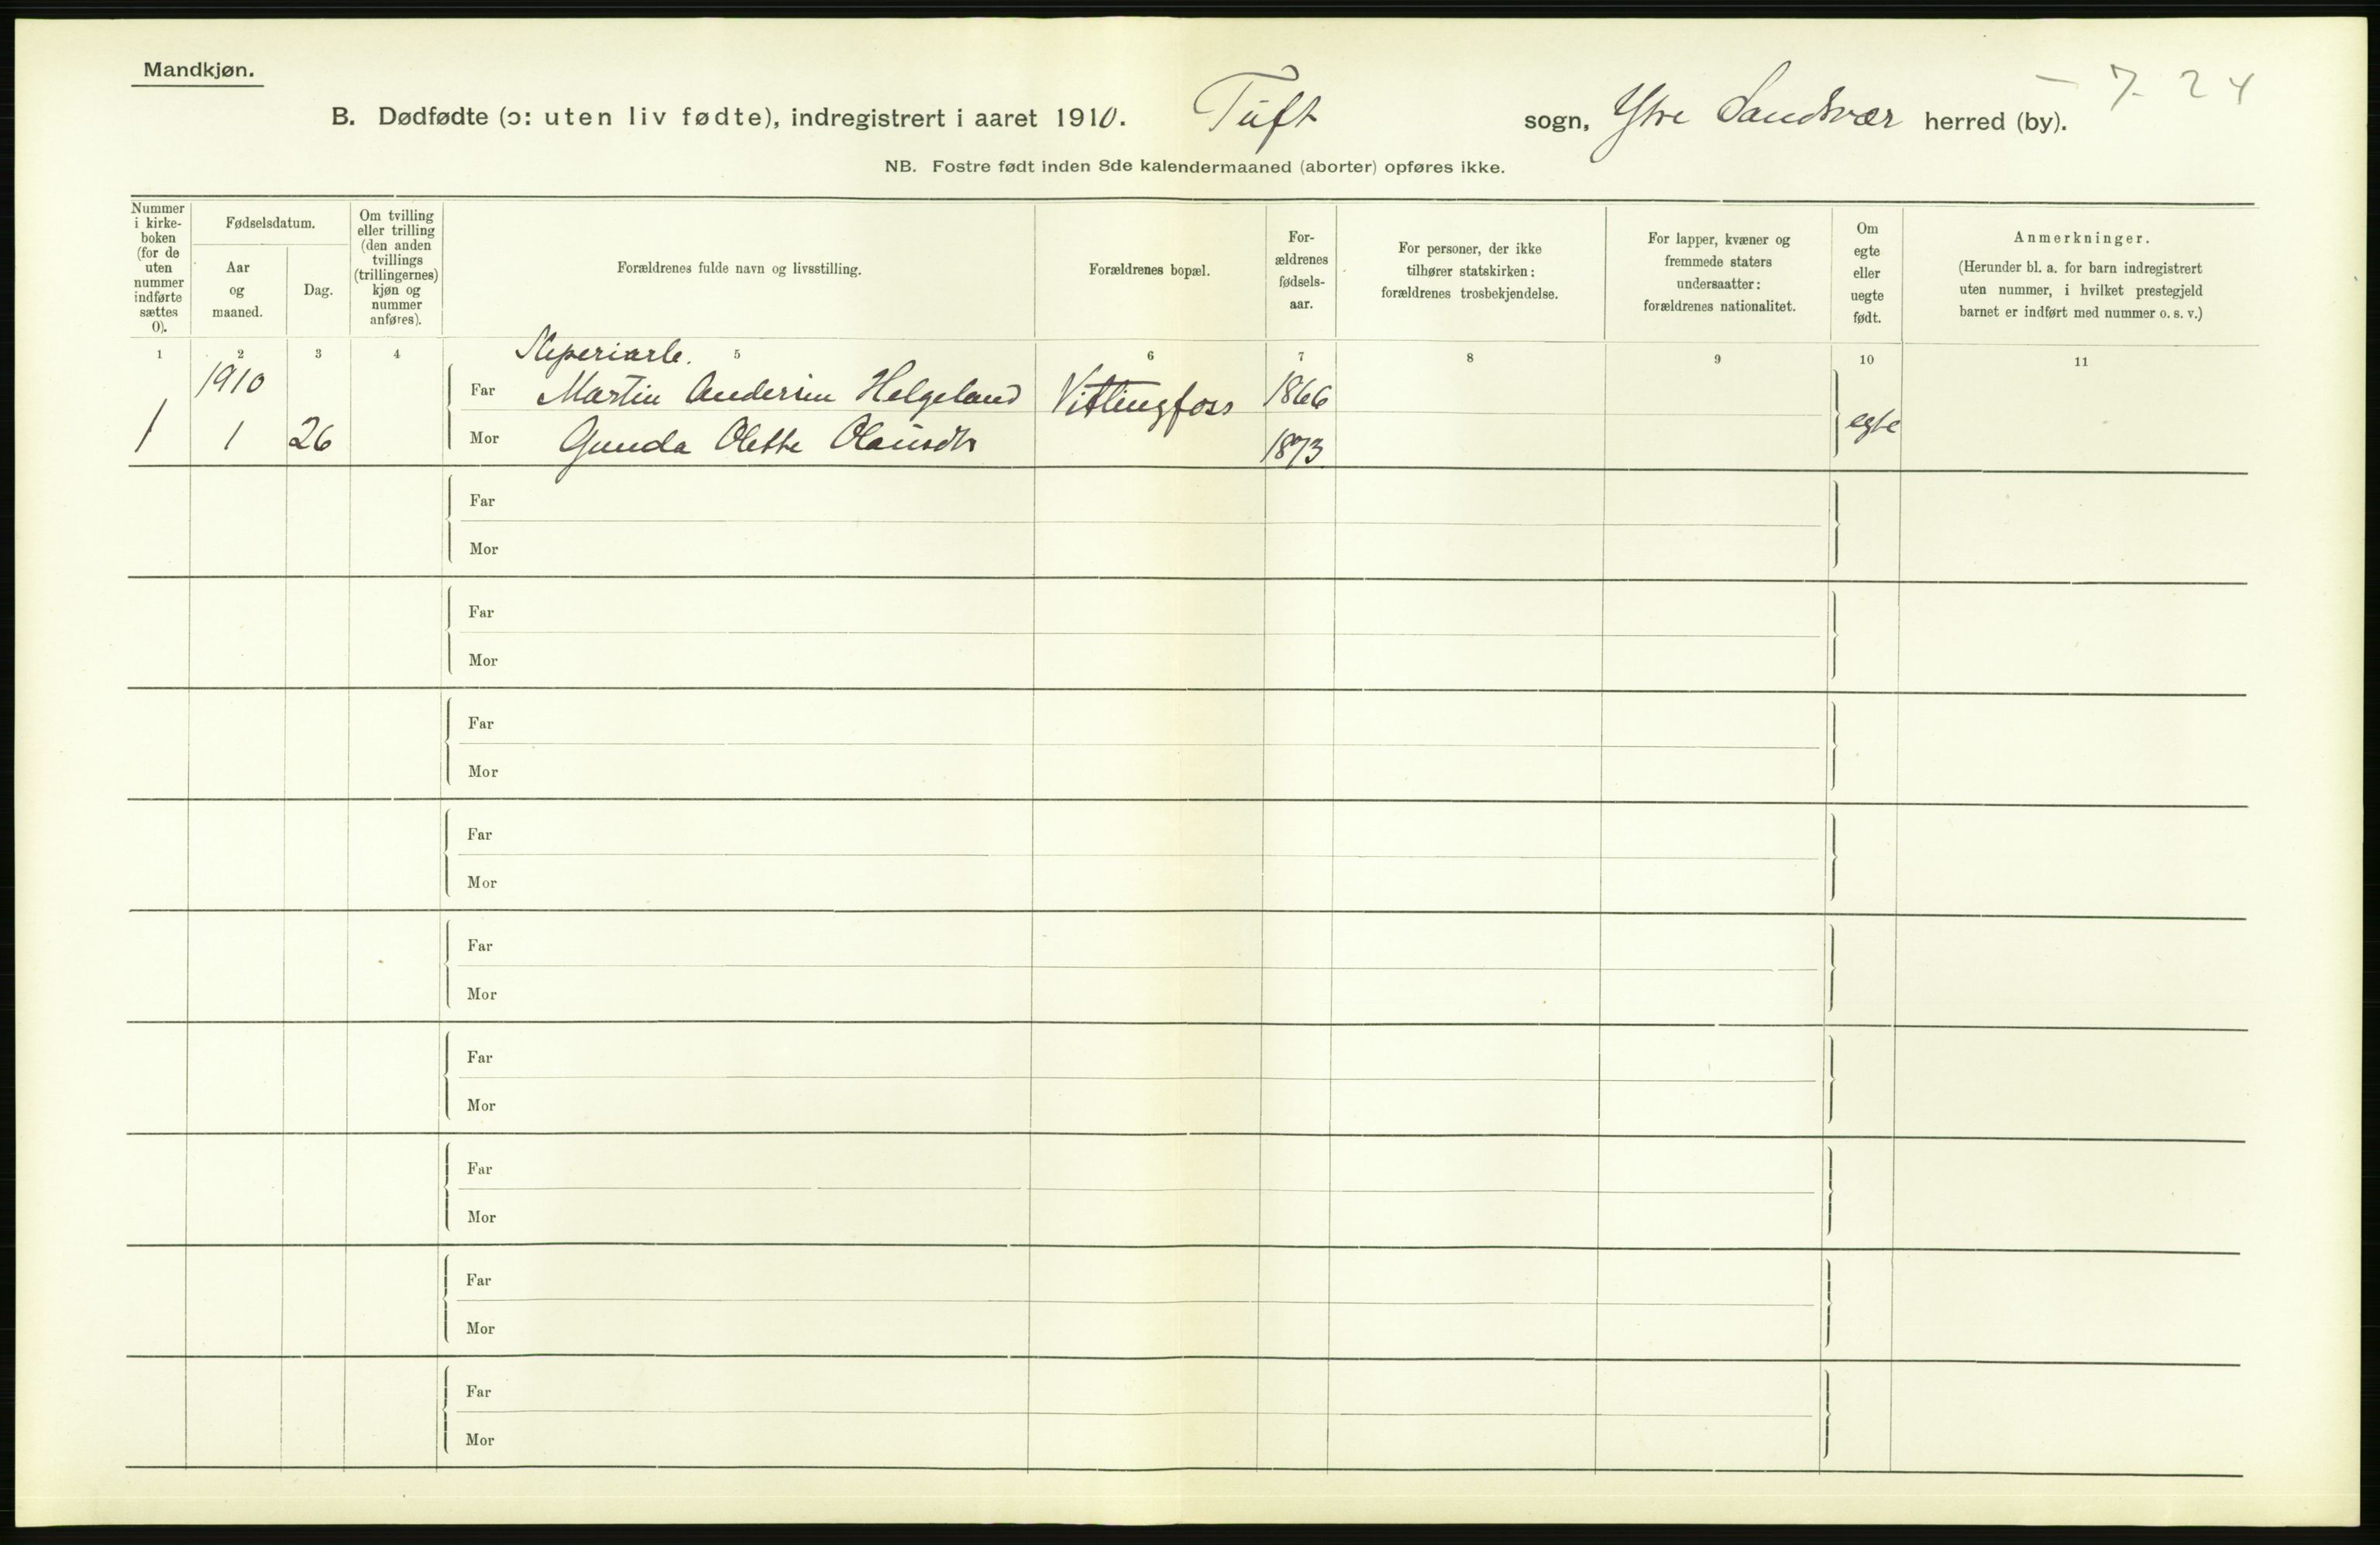 Mandkjøn.
- 7-24
B. Dødfødte (ɔ: uten liv fødte), indregistrert i aaret 1910. Tuft sogn, Ytre Sandsvær herred (by).
NB. Fostre født inden 8de kalendermaaned (aborter) opføres ikke.
Nummer
i kirke-
boken
(for de
uten
nummer
indførte
sættes
0).
Fødselsdatum.
Aar
og
maaned.
Dag.
Om tvilling
eller trilling
(den anden
tvillings
(trillingernes)
kjøn og
nummer
anføres).
Forældrenes fulde navn og livsstilling.
Forældrenes bopæl.
For-
ældrenes
fødsels-
aar.
For personer, der ikke
tilhører statskirken:
forældrenes trosbekjendelse.
For lapper, kvæner og
fremmede staters
undersaatter:
forældrenes nationalitet.
Om
egte
eller
uegte
født.
Anmerkninger.
(Herunder bl. a. for barn indregistrert
uten nummer, i hvilket prestegjeld
barnet er indført med nummer o. s. v.)
1 2 3 4 5 6 7 8 9 10 11
1910
Far Martin Andersen Helgeland Vittingfoss 1866
1 1 26 Mor Gunda Olette Olausdtr 1873 egte
Far
Mor
Far
Mor
Far
Mor
Far
Mor
Far
Mor
Far
Mor
Far
Mor
Far
Mor
Far
Mor